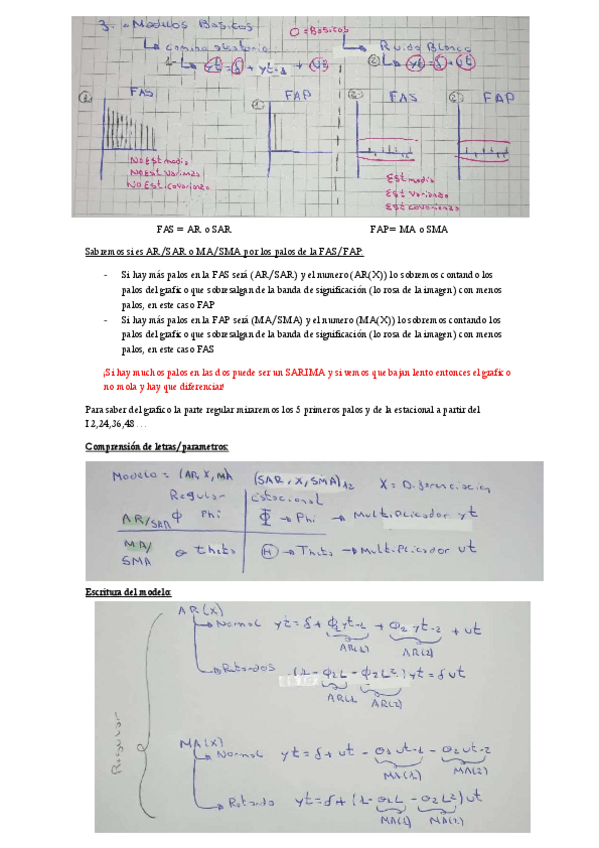 3.- Modulos Basicos
O = Basicos
↳ camino aleatorio
↳ Ruido Blanco
↳ yt = δ + yt-1 + Ut
② ↳ yt = δ + Ut
① FAS
① FAP
② FAS
② FAP
No Est media
No Est varianza
No Est covarianza
Est media
Est varianza
Est covarianza
FAS = AR o SAR
FAP= MA o SMA
Sabremos si es AR/SAR o MA/SMA por los palos de la FAS/FAP:
- Si hay más palos en la FAS será (AR/SAR) y el numero (AR(X)) lo sobremos contando los
palos del grafico que sobresalgan de la banda de significación (lo rosa de la imagen) con menos
palos, en este caso FAP
- Si hay más palos en la FAP será (MA/SMA) y el numero (MA(X)) lo sobremos contando los
palos del grafico que sobresalgan de la banda de significación (lo rosa de la imagen) con menos
palos, en este caso FAS
¡Si hay muchos palos en las dos puede ser un SARIMA y si vemos que bajan lento entonces el grafico
no mola y hay que diferenciar!
Para saber del grafico la parte regular miraremos los 5 primeros palos y de la estacional a partir del
12,24,36,48…
Comprensión de letras/parametros:
Modelo = (AR, X, MA) (SAR, X, SMA)12 X = Diferenciacion
Regular Estacional
AR/SAR Φ Phi Φ → Phi → Multiplicador yt
MA/
SMA
θ theta Θ → Theta → Multiplicador Ut
Escritura del modelo:
Regular
AR(X)
↳ Normal yt = δ + Φ1yt-1 + Φ2yt-2 + Ut
AR(1) AR(2)
↳ Retardos (1 - Φ1L - Φ2L²)yt = δ Ut
AR(1 AR(2)
MA(X)
↳ Normal yt = δ + Ut - θ1Ut-1 - θ2Ut-2
MA(1) MA(2)
↳ Retardo yt = δ + (1 - θ1L - θ2L²)Ut
MA(1) MA(2)